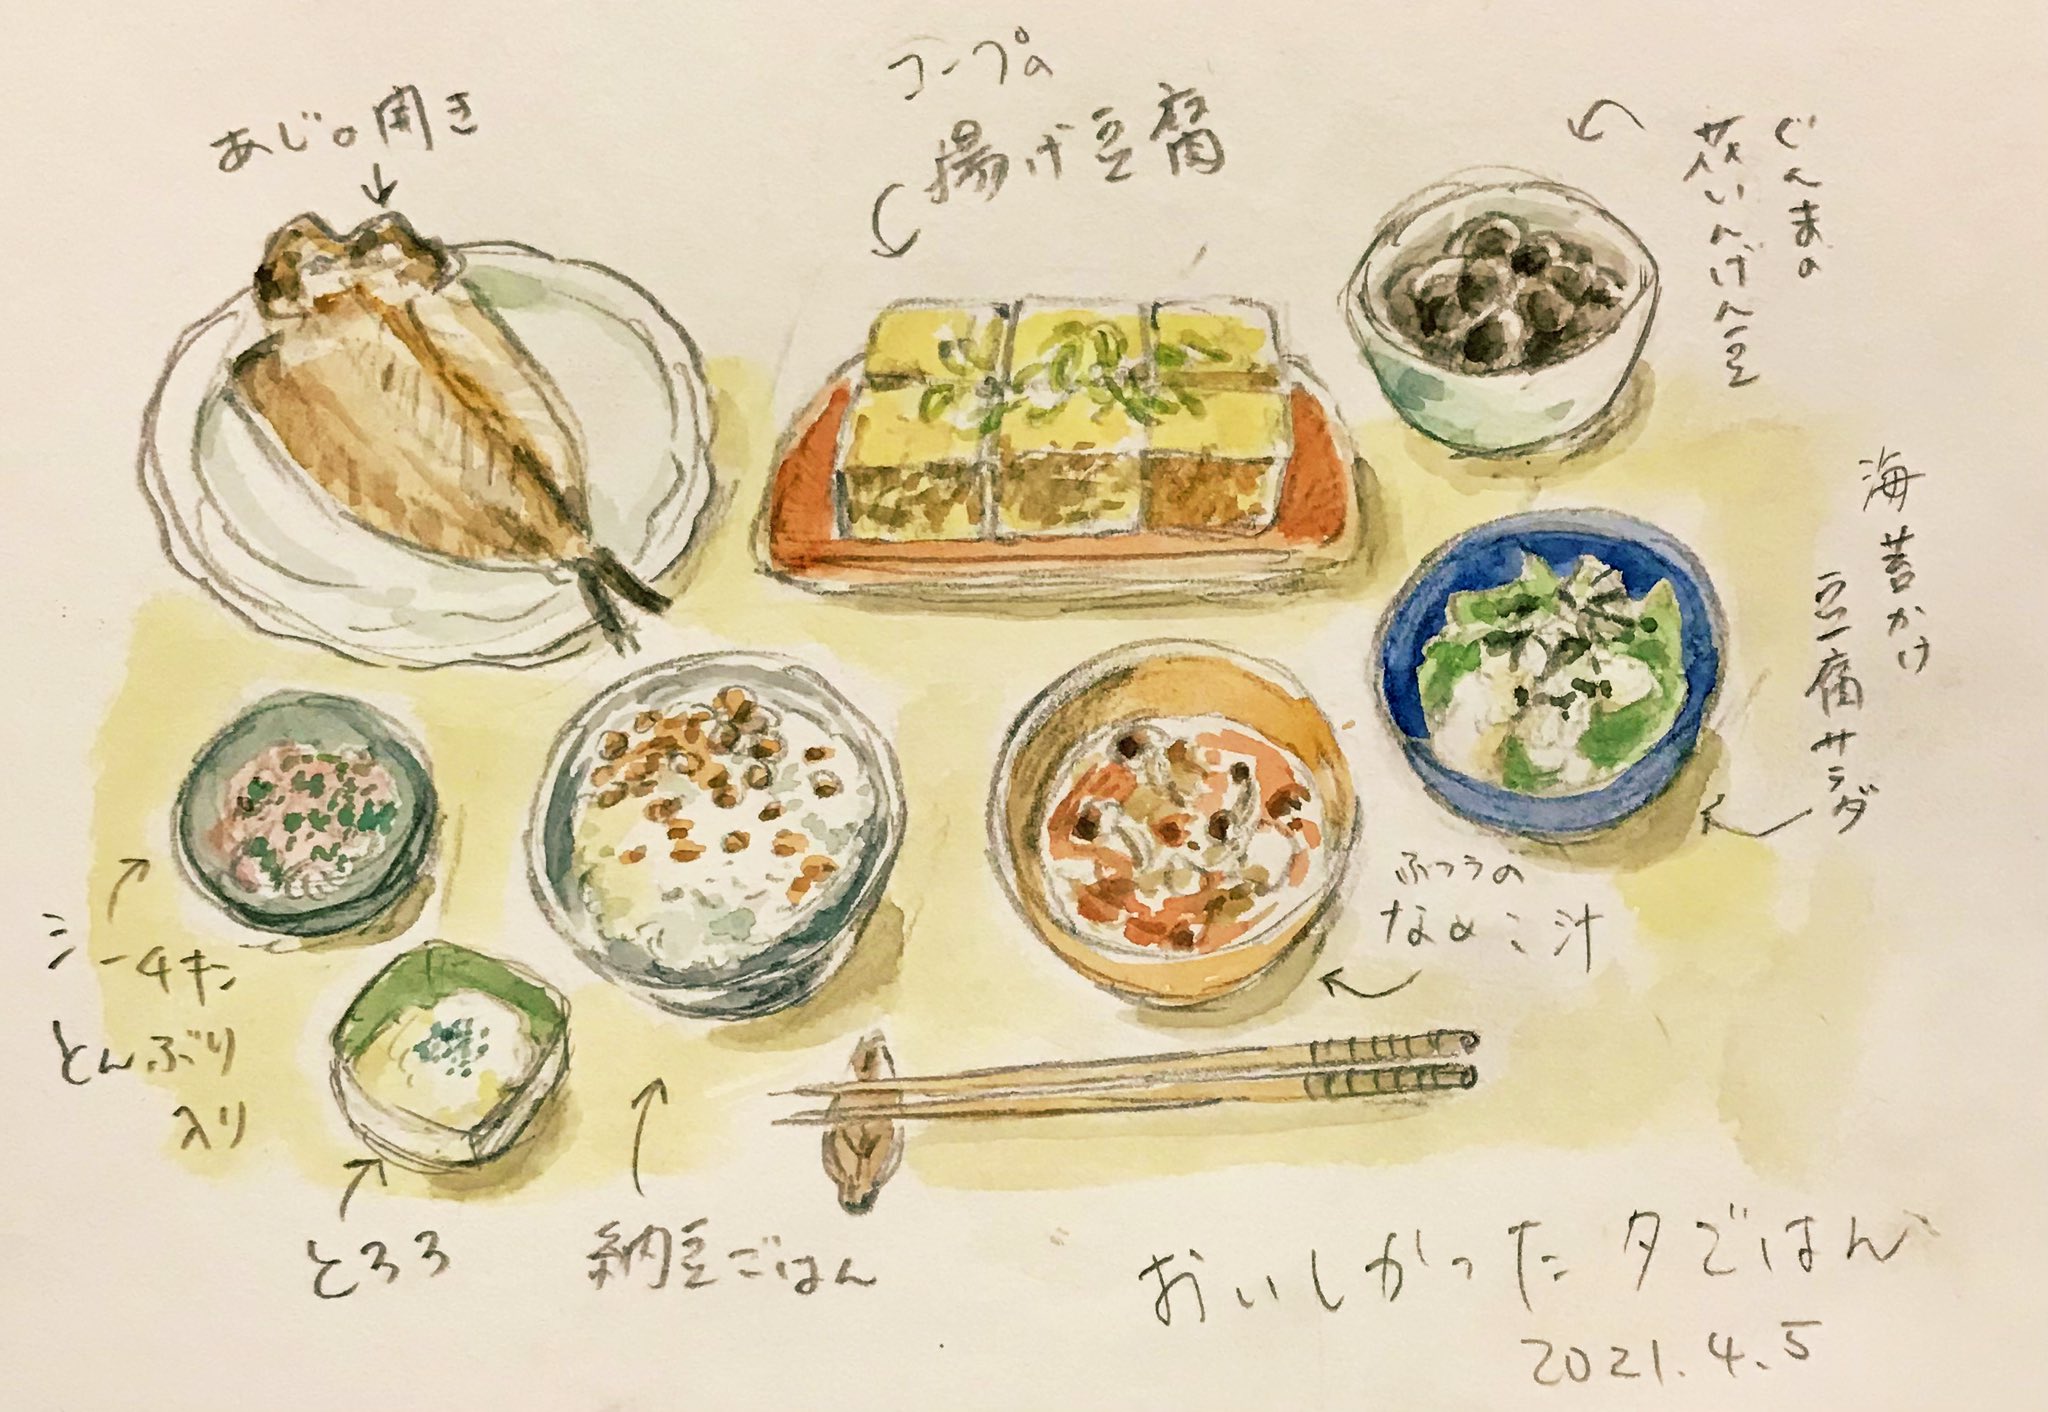 あじの開き
コープの
揚げ豆腐
ぐんまの
花いんげん豆
海苔かけ
豆腐サラダ
シーチキン
とんぶり
入り
とろろ
納豆ごはん
ふつうの
なめこ汁
おいしかった夕ごはん
2021.4.5